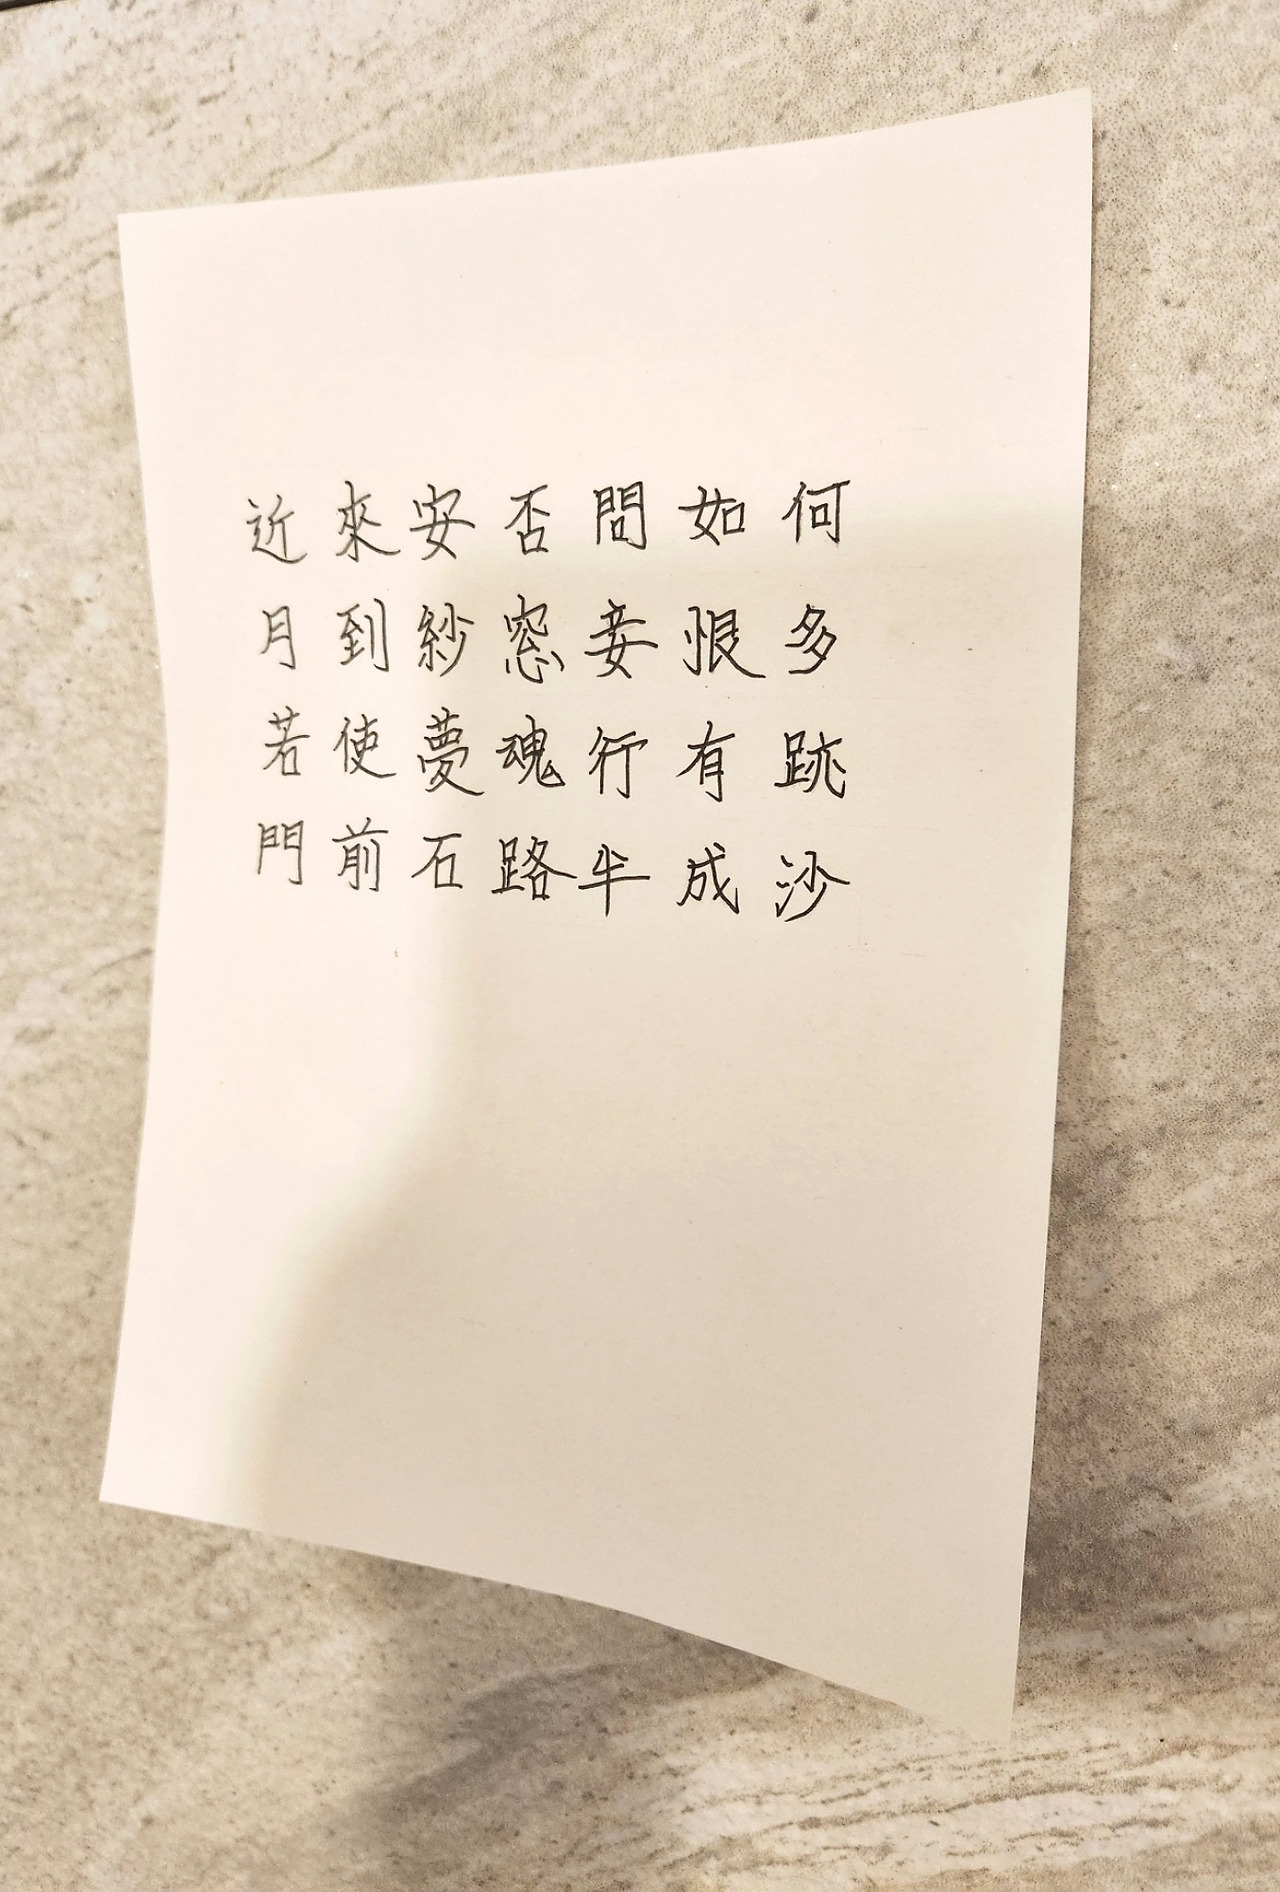 近來安否問如何
月到紗窓妾恨多
若使夢魂行有跡
門前石路半成沙